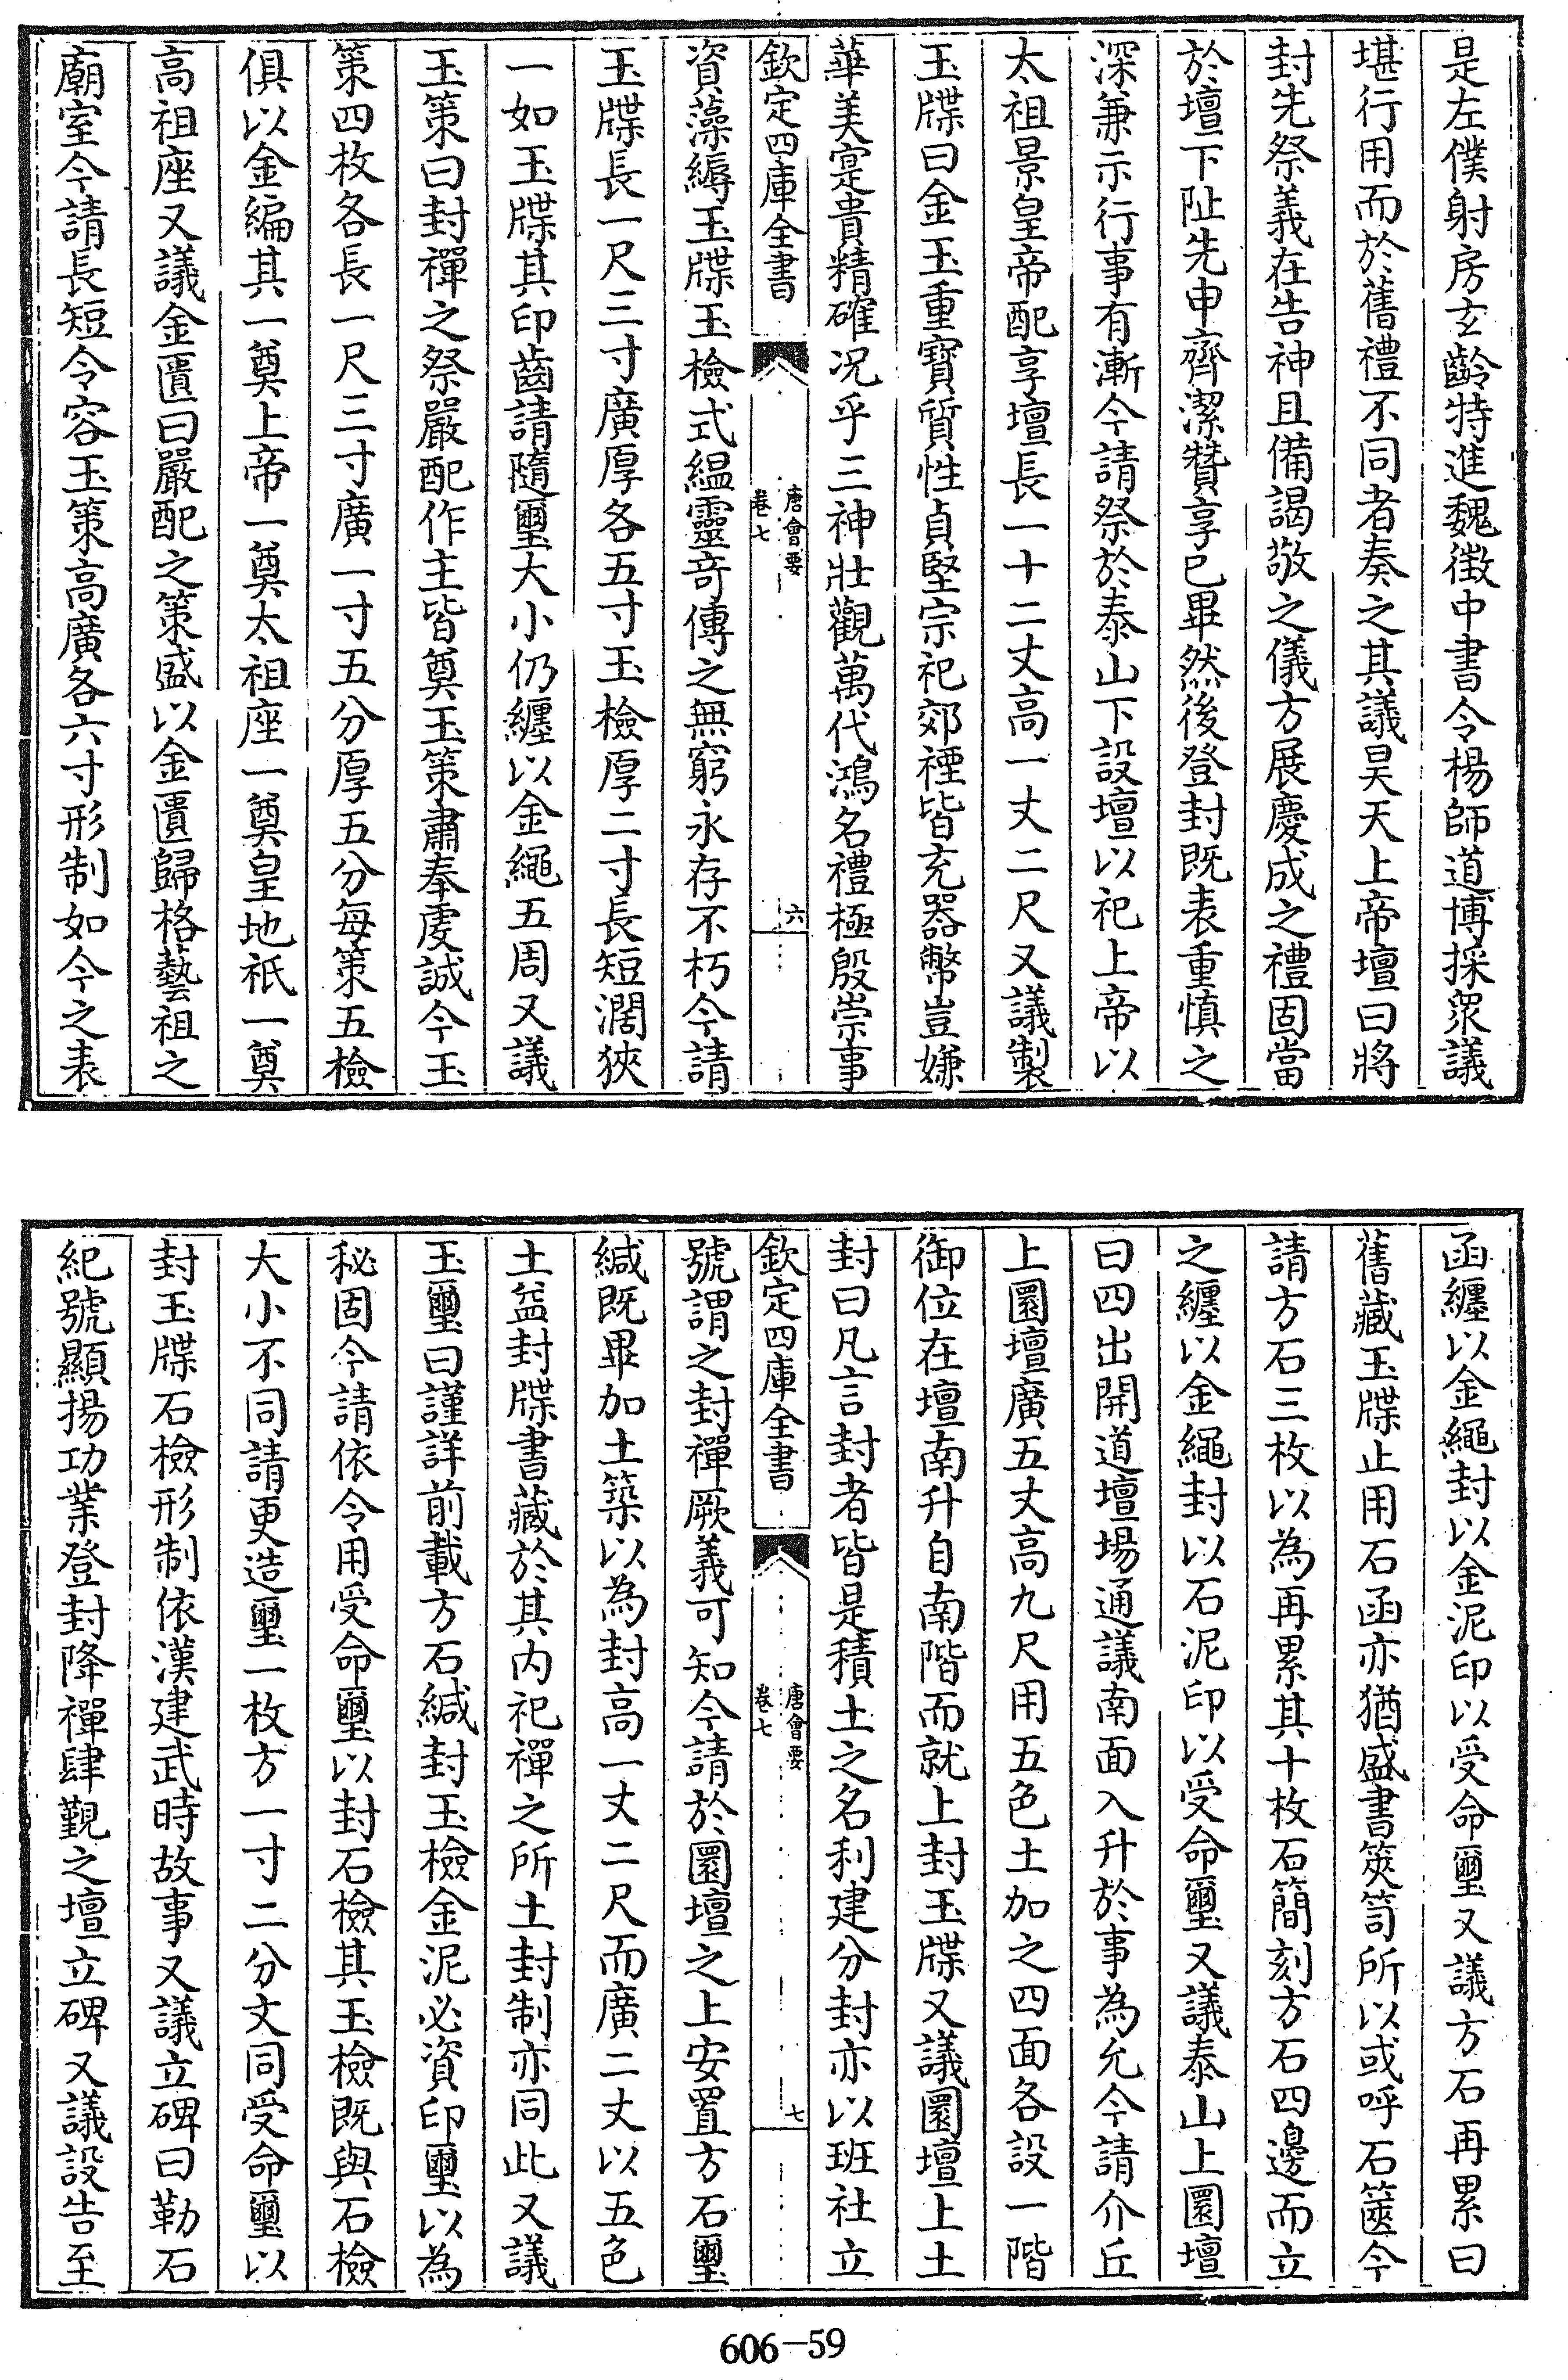 是左僕射房玄齡特進魏徵中書令楊師道博採衆議
堪行用而於舊禮不同者奏之其議昊天上帝壇曰將
封先祭義在告神且備謁敬之儀方展慶成之禮固當
於壇下阯先申齊潔贊享已畢然後登封既表重慎之
深兼示行事有漸今請祭於泰山下設壇以祀上帝以
太祖景皇帝配享壇長一十二丈高一丈二尺又議製
玉牒曰金玉重寶質性貞堅宗祀郊禋皆充器幣豈嫌
華美寔貴精確况乎三神壯觀萬代鴻名禮極殷崇事
欽定四庫全書
唐會要
卷七
六
資藻縟玉牒玉檢式緼靈奇傳之無窮永存不朽今請
玉牒長一尺三寸廣厚各五寸玉檢厚二寸長短濶狹
一如玉牒其印齒請隨璽大小仍纏以金繩五周又議
玉策曰封禪之祭嚴配作主皆奠玉策肅奉虔誠今玉
策四枚各長一尺三寸廣一寸五分厚五分每策五檢
俱以金編其一奠上帝一奠太祖座一奠皇地祇一奠
高祖座又議金匱曰嚴配之策盛以金匱歸格藝祖之
廟室今請長短令容玉策高廣各六寸形制如今之表
函纏以金繩封以金泥印以受命璽又議方石再累曰
舊藏玉牒止用石函亦猶盛書篋笥所以或呼石篋今
請方石三枚以為再累其十枚石簡刻方石四邊而立
之纏以金繩封以石泥印以受命璽又議泰山上圜壇
曰四出開道壇場通議南面入升於事為允今請介丘
上圜壇廣五丈高九尺用五色土加之四面各設一階
御位在壇南升自南階而就上封玉牒又議圜壇上土
封曰凡言封者皆是積土之名利建分封亦以班社立
欽定四庫全書
唐會要
卷七
七
號謂之封禪厥義可知今請於圜壇之上安置方石璽
緘既畢加土築以為封高一丈二尺而廣二丈以五色
土益封牒書藏於其内祀禪之所土封制亦同此又議
玉璽曰謹詳前載方石緘封玉檢金泥必資印璽以為
秘固今請依令用受命璽以封石檢其玉檢既與石檢
大小不同請更造璽一枚方一寸二分文同受命璽以
封玉牒石檢形制依漢建武時故事又議立碑曰勒石
紀號顯揚功業登封降禪肆覲之壇立碑又議設告至
606-59